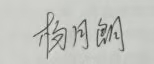 杨月朗